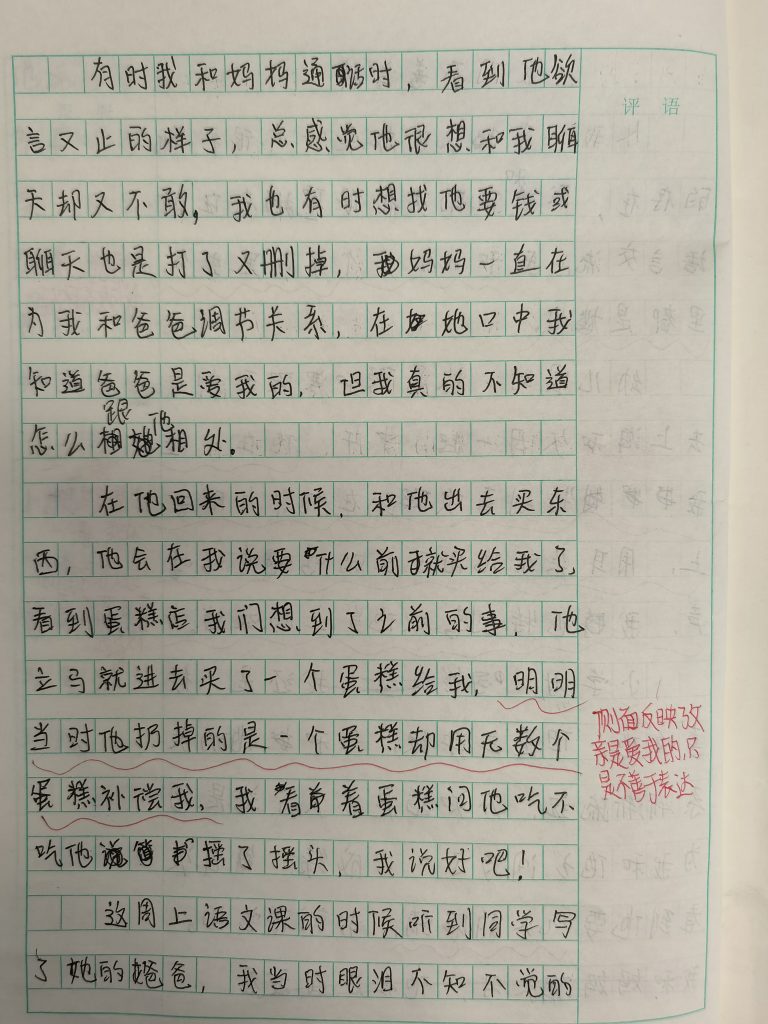 评 语
有时我和妈妈通话时，看到他欲
言又止的样子，总感觉他很想和我聊
天却又不敢，我也有时想找他要钱或
聊天也是打了又删掉，我妈妈一直在
为我和爸爸调节关系，在她口中我
知道爸爸是爱我的，但我真的不知道
怎么跟他相处。
在他回来的时候，和他出去买东
西，他会在我说要什么前就买给我了，
看到蛋糕店我们想到了之前的事，他
立马就进去买了一个蛋糕给我，明明
当时他扔掉的是一个蛋糕却用无数个
蛋糕补偿我，我看着蛋糕问他吃不
吃他摇了摇头，我说好吧！
这周上语文课的时候听到同学写
了她的爸爸，我当时眼泪不知不觉的
侧面反映了父
亲是爱我的，只
是不善于表达